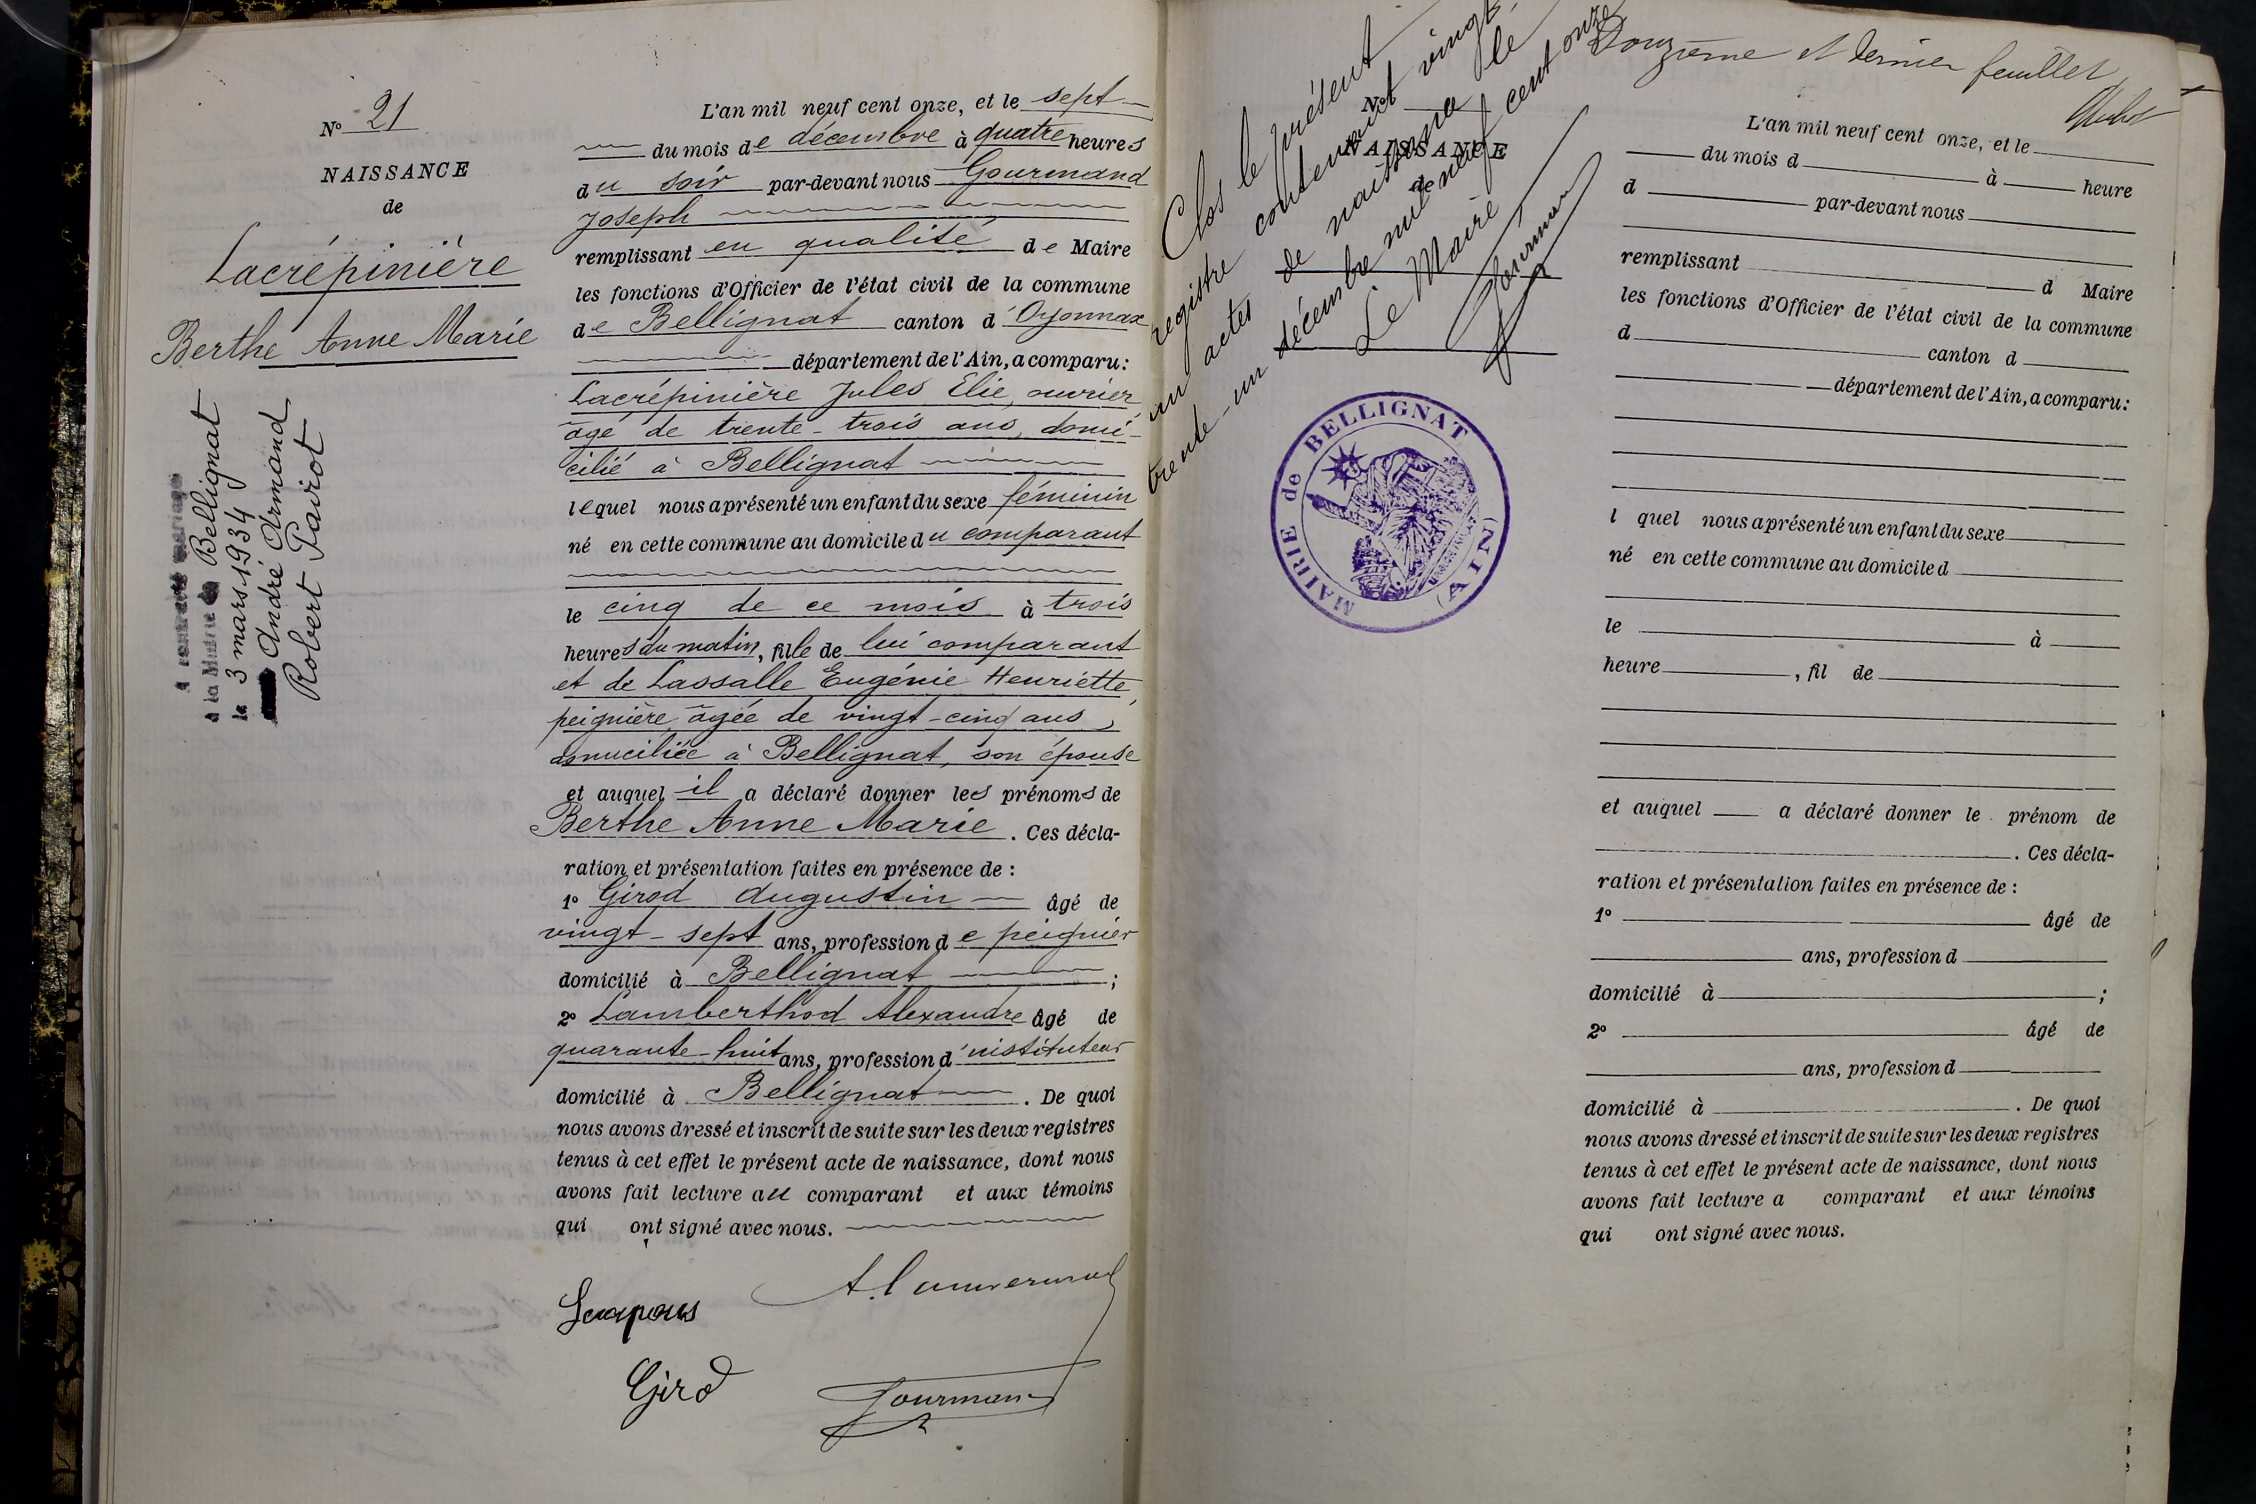 N° 21
NAISSANCE
de
Lacrépinière
Berthe Anne Marie
A contracté mariage
à la Mairie de Bellignat
le 3 mars 1934
André Armand
Robert Pairot
L'an mil neuf cent onze, et le sept
du mois de décembre à quatre heures
du soir par-devant nous Gourmand
Joseph
remplissant en qualité de Maire
les fonctions d'Officier de l'état civil de la commune
de Bellignat canton d'Oyonnax
département de l'Ain, a comparu :
Lacrépinière Jules Elie, ouvrier
âgé de trente-trois ans, domi-
cilié à Bellignat
lequel nous a présenté un enfant du sexe féminin
né en cette commune au domicile du comparant
le cinq de ce mois à trois
heures du matin, fille de lui comparant
et de Lassalle Eugénie Henriette,
peignière, âgée de vingt-cinq ans,
domiciliée à Bellignat, son épouse
et auquel il a déclaré donner les prénoms de
Berthe Anne Marie. Ces décla-
ration et présentation faites en présence de :
1° Girod Augustin âgé de
vingt-sept ans, profession de peignier
domicilié à Bellignat ;
2° Lamberthod Alexandre âgé de
quarante-huit ans, profession d'instituteur
domicilié à Bellignat. De quoi
nous avons dressé et inscrit de suite sur les deux registres
tenus à cet effet le présent acte de naissance, dont nous
avons fait lecture au comparant et aux témoins
qui ont signé avec nous.
Girod
Gourmand
Clos le présent
registre contenant vingt
un actes de naissance le
trente-un décembre mil neuf cent onze
Le Maire
Gourmand
N°
NAISSANCE
de
MAIRIE de BELLIGNAT
(AIN)
Douzième et dernier feuillet
L'an mil neuf cent onze, et le
du mois d à heure
d par-devant nous
remplissant d Maire
les fonctions d'Officier de l'état civil de la commune
d canton d
département de l'Ain, a comparu :
l quel nous a présenté un enfant du sexe
né en cette commune au domicile d
le à
heure , fil de
et auquel a déclaré donner le prénom de
. Ces décla-
ration et présentation faites en présence de :
1° âgé de
ans, profession d
domicilié à ;
2° âgé de
ans, profession d
domicilié à . De quoi
nous avons dressé et inscrit de suite sur les deux registres
tenus à cet effet le présent acte de naissance, dont nous
avons fait lecture a comparant et aux témoins
qui ont signé avec nous.